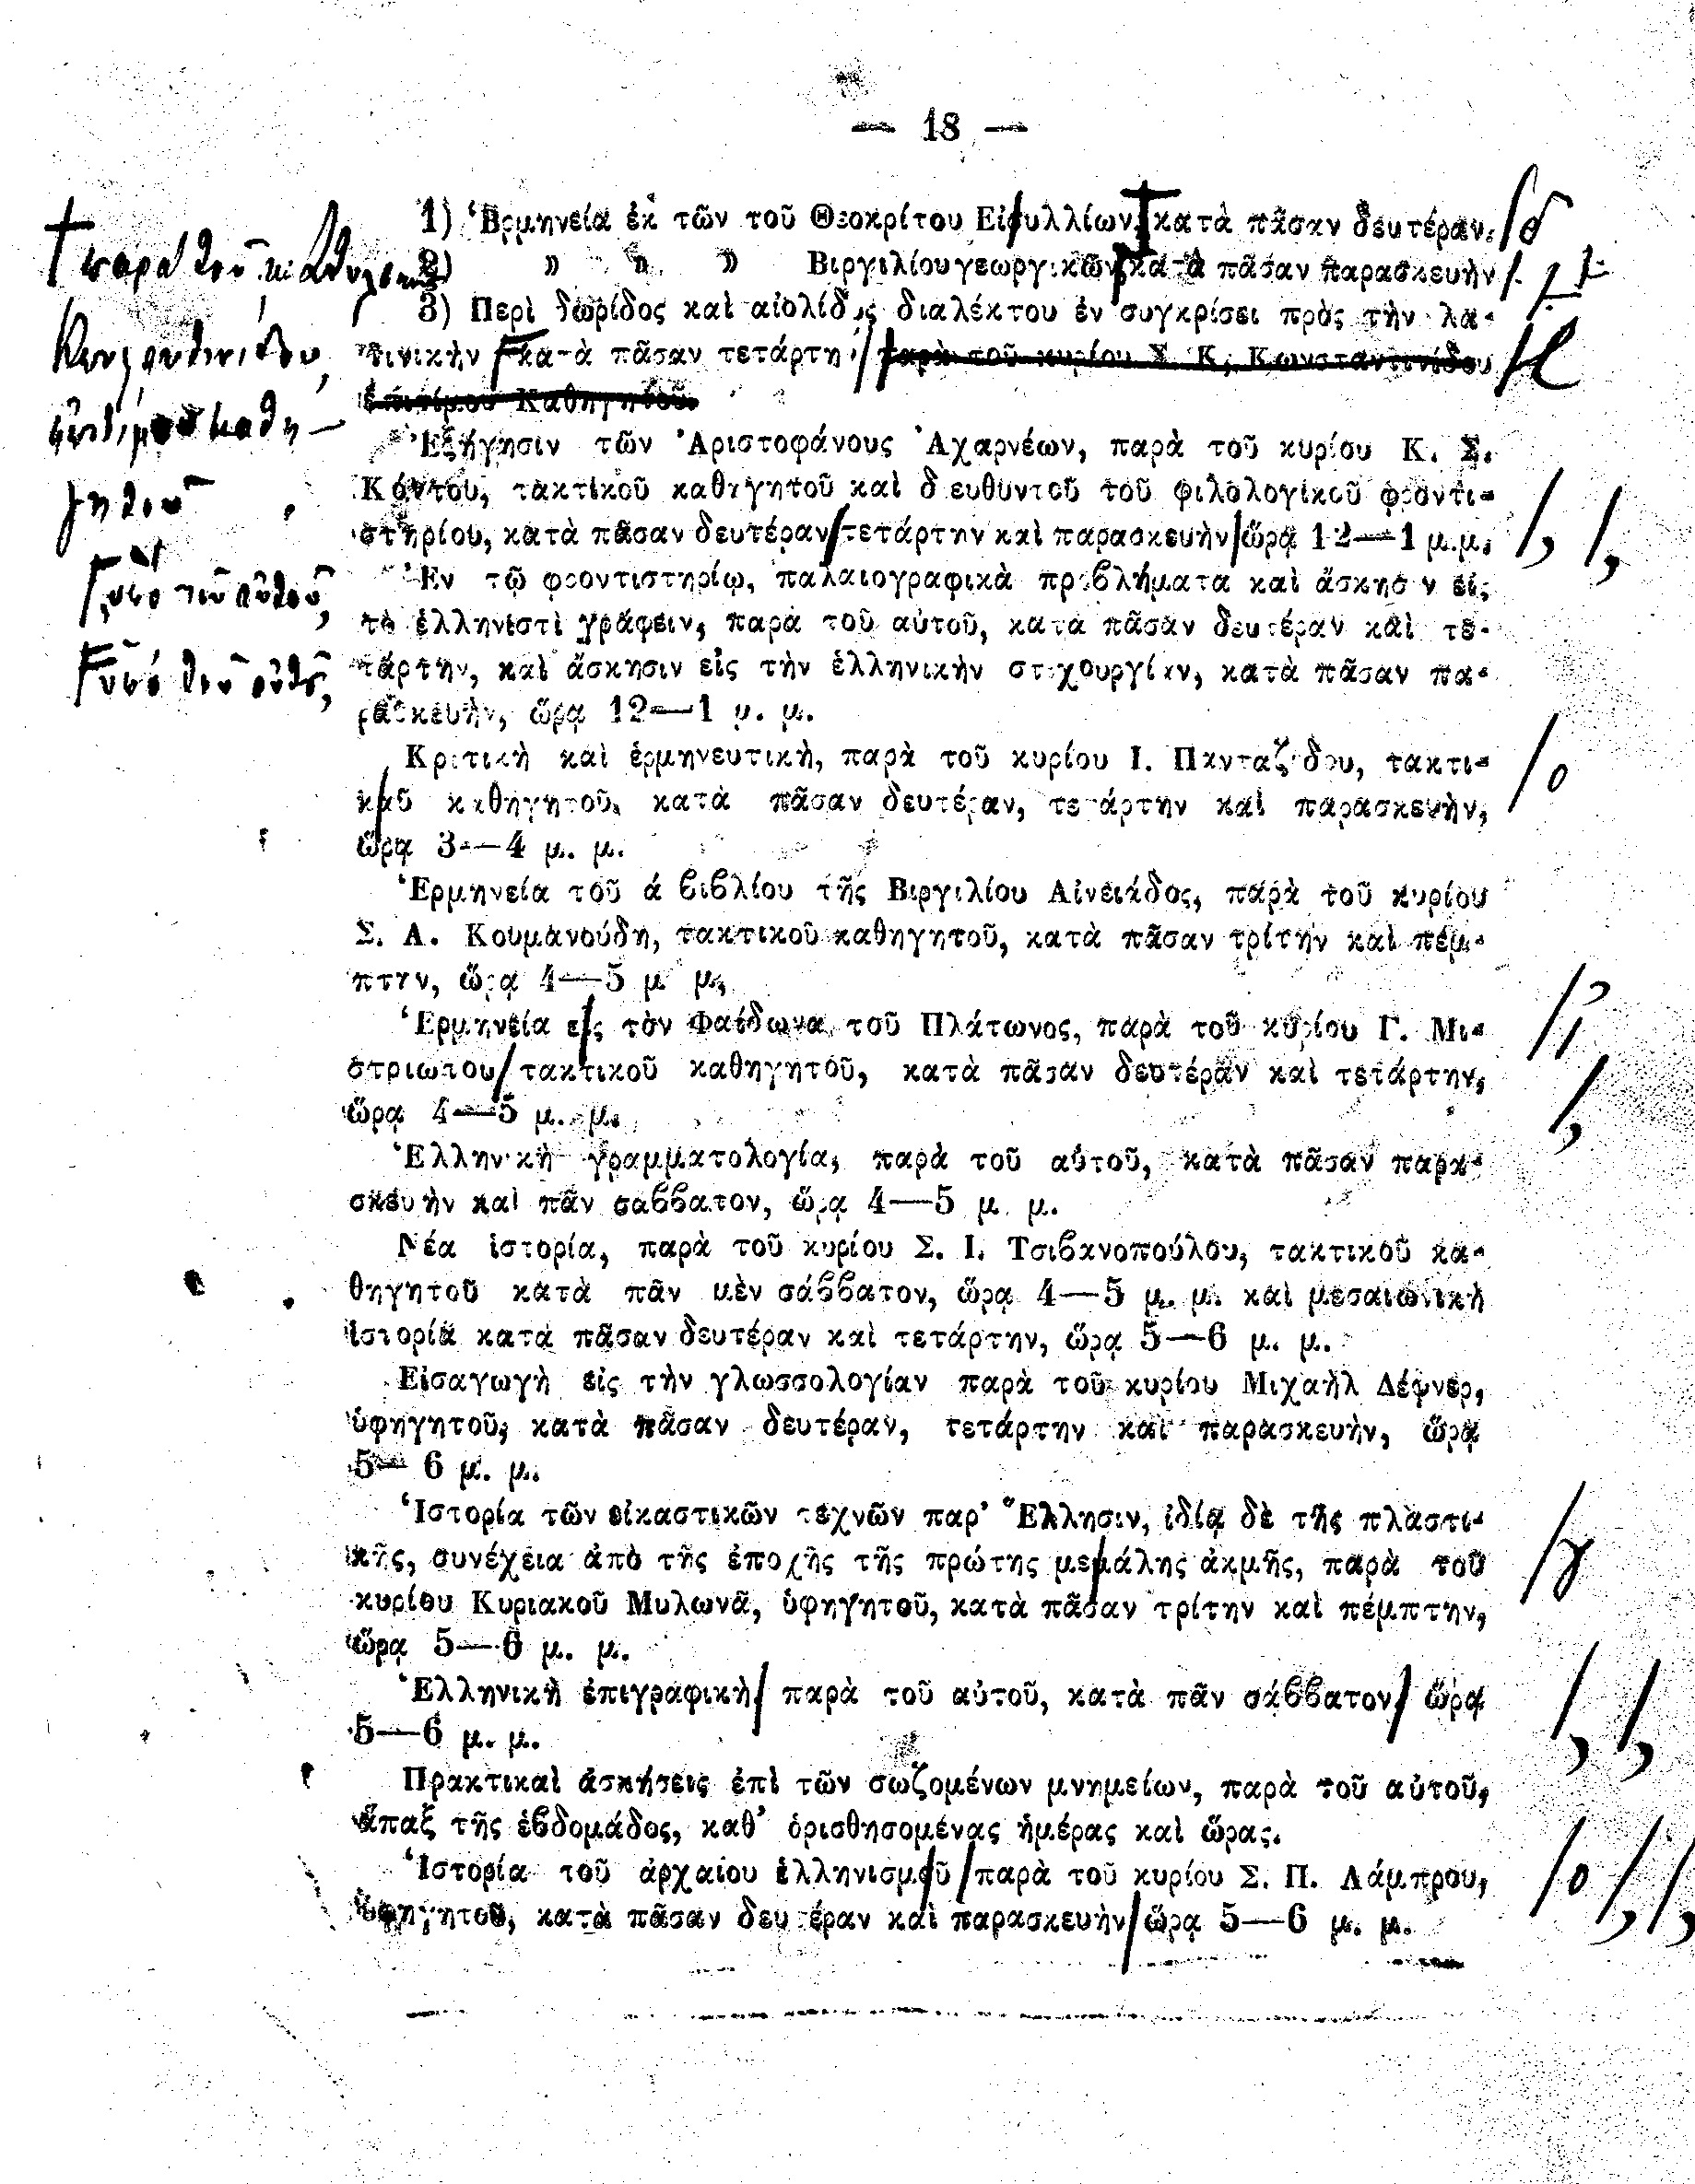 — 18 —
1) Ἑρμηνεία ἐκ τῶν τοῦ Θεοκρίτου Εἰφυλλίων, κατὰ πᾶσαν δευτέραν.
2) » » » Βιργιλίου γεωργικῶν, κατὰ πᾶσαν παρασκευὴν
3) Περὶ δωρίδος καὶ αἰολίδος διαλέκτου ἐν συγκρίσει πρὸς τὴν λα-
τινικὴν κατὰ πᾶσαν τετάρτη παρὰ τοῦ κυρίου Σ. Κ. Κωνσταντινίδου
ἐπιτίμου Καθηγητοῦ.
Ἐξήγησιν τῶν Ἀριστοφάνους Ἀχαρνέων, παρὰ τοῦ κυρίου Κ. Σ.
Κόντου, τακτικοῦ καθηγητοῦ καὶ διευθυντοῦ τοῦ φιλολογικοῦ φροντι-
στηρίου, κατὰ πᾶσαν δευτέραν τετάρτην καὶ παρασκευὴν ὥρᾳ 12—1 μ.μ.
Ἐν τῷ φροντιστηρίῳ, παλαιογραφικὰ προβλήματα καὶ ἄσκησιν εἰς
τὸ ἑλληνιστὶ γράφειν, παρὰ τοῦ αὐτοῦ, κατὰ πᾶσαν δευτέραν καὶ τε-
τάρτην, καὶ ἄσκησιν εἰς τὴν ἑλληνικὴν στιχουργίαν, κατὰ πᾶσαν πα-
ρασκευὴν, ὥρᾳ 12—1 μ. μ.
Κριτικὴ καὶ ἑρμηνευτικὴ, παρὰ τοῦ κυρίου Ι. Πανταζίδου, τακτι-
καῦ καθηγητοῦ, κατὰ πᾶσαν δευτέραν, τετάρτην καὶ παρασκευὴν,
ὥρᾳ 3—4 μ. μ.
Ἑρμηνεία τοῦ ά βιβλίου τῆς Βιργιλίου Αἰνειάδος, παρὰ τοῦ κυρίου
Σ. Α. Κουμανούδη, τακτικοῦ καθηγητοῦ, κατὰ πᾶσαν τρίτην καὶ πέμ-
πτην, ὥρᾳ 4—5 μ μ,
Ἑρμηνεία εἰς τὸν Φαίδωνα τοῦ Πλάτωνος, παρὰ τοῦ κυρίου Γ. Μι-
στριωτου τακτικοῦ καθηγητοῦ, κατὰ πᾶσαν δευτέραν καὶ τετάρτην,
ὥρᾳ 4—5 μ. μ.
Ἑλληνικὴ γραμματολογία, παρὰ τοῦ αὐτοῦ, κατὰ πᾶσαν παρα-
σκευὴν καὶ πᾶν σαββατον, ὥρᾳ 4—5 μ. μ.
Νέα ἱστορία, παρὰ τοῦ κυρίου Σ. Ι. Τσιβανοπούλου, τακτικοῦ κα-
θηγητοῦ κατὰ πᾶν μὲν σάββατον, ὥρᾳ 4—5 μ. μ. καὶ μεσαιωνικὴ
ἱστορία κατὰ πᾶσαν δευτέραν καὶ τετάρτην, ὥρᾳ 5—6 μ. μ.
Εἰσαγωγὴ εἰς τὴν γλωσσολογίαν παρὰ τοῦ κυρίου Μιχαὴλ Δέφνερ,
ὑφηγητοῦ, κατὰ πᾶσαν δευτέραν, τετάρτην καὶ παρασκευὴν, ὥρᾳ
5— 6 μ. μ.
Ἱστορία τῶν εἰκαστικῶν τεχνῶν παρ’ Ἕλλησιν, ἰδίᾳ δὲ τῆς πλαστι-
κῆς, συνέχεια ἀπὸ τῆς ἐποχῆς τῆς πρώτης μεμάλης ἀκμῆς, παρὰ τοῦ
κυρίου Κυριακοῦ Μυλωνᾶ, ὑφηγητοῦ, κατὰ πᾶσαν τρίτην καὶ πέμπτην,
ὥρᾳ 5—6 μ. μ.
Ἑλληνικὴ ἐπιγραφικὴ παρὰ τοῦ αὐτοῦ, κατὰ πᾶν σάββατον ὥρᾳ
5—6 μ. μ.
Πρακτικαὶ ἀσκήσεις ἐπὶ τῶν σωζομένων μνημείων, παρὰ τοῦ αὐτοῦ,
ἅπαξ τῆς ἑβδομάδος, καθ’ ὁρισθησομένας ἡμέρας καὶ ὥρας.
Ἱστορία τοῦ ἀρχαίου ἑλληνισμοῦ παρὰ τοῦ κυρίου Σ. Π. Λάμπρου,
ὑφηγητοῦ, κατὰ πᾶσαν δευτέραν καὶ παρασκευὴν ὥρᾳ 5—6 μ. μ.
παρὰ τοῦ κ.
Κωνσταντινίδου,
ἐπιτίμου καθη-
γητοῦ
ὑπὸ τοῦ αὐτοῦ,
ὑπὸ τοῦ αὐτοῦ,